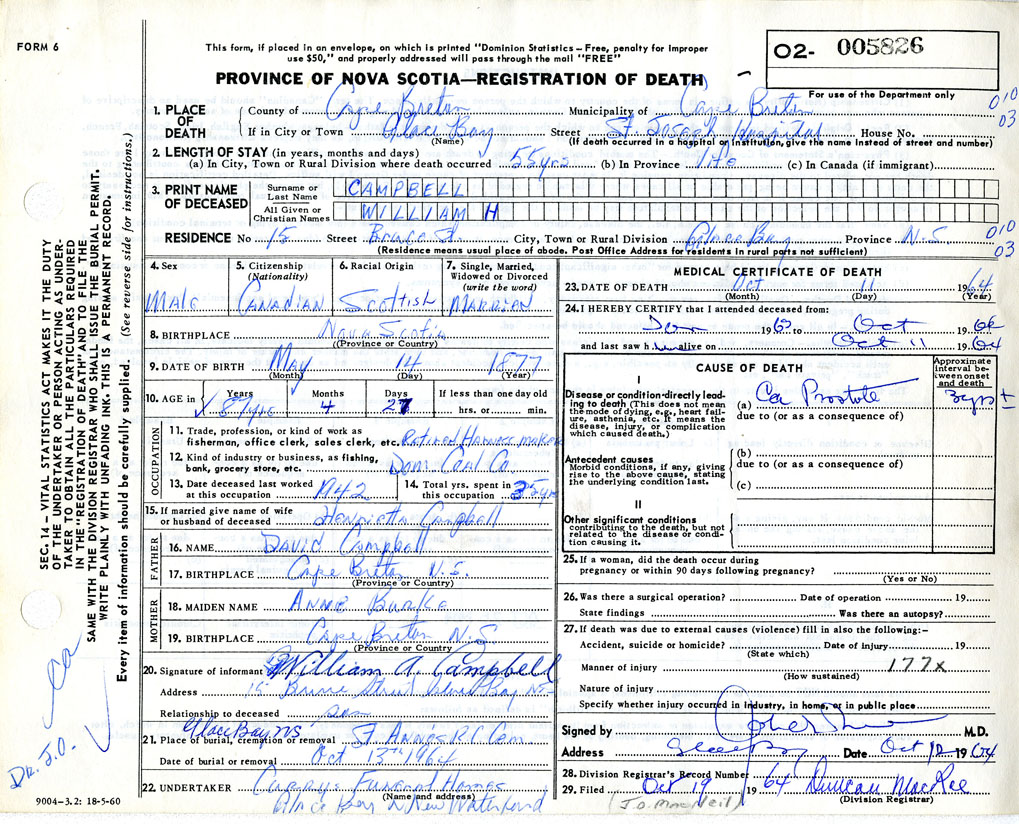 FORM 6
This form, if placed in an envelope, on which is printed "Dominion Statistics – Free, penalty for improper
use $50," and properly addressed will pass through the mail "FREE"
O2- 005826
PROVINCE OF NOVA SCOTIA—REGISTRATION OF DEATH
For use of the Department only
010
03
1. PLACE OF DEATH
County of Cape Breton Municipality of Cape Breton
If in City or Town Glace Bay Street St. Joseph Hospital House No.
(Name) (If death occurred in a hospital or institution, give the name instead of street and number)
2. LENGTH OF STAY (in years, months and days)
(a) In City, Town or Rural Division where death occurred 55yrs (b) In Province life (c) In Canada (if immigrant)
3. PRINT NAME OF DECEASED
Surname or Last Name CAMPBELL
All Given or Christian Names WILLIAM H
RESIDENCE No 15 Street City, Town or Rural Division Glace Bay Province N.S
010
03
(Residence means usual place of abode. Post Office Address for residents in rural parts not sufficient)
4. Sex Male
5. Citizenship (Nationality) CANADIAN
6. Racial Origin Scottish
7. Single, Married, Widowed or Divorced (write the word) MARRIED
8. BIRTHPLACE Nova Scotia
(Province or Country)
9. DATE OF BIRTH May 14 1877
(Month) (Day) (Year)
10. AGE in Years Months Days If less than one day old
87yrs 4 27 hrs. or min.
OCCUPATION
11. Trade, profession, or kind of work as
fisherman, office clerk, sales clerk, etc. Retired Harness maker
12. Kind of industry or business, as fishing,
bank, grocery store, etc. Dom. Coal Co.
13. Date deceased last worked at this occupation 1942
14. Total yrs. spent in this occupation 35yrs
15. If married give name of wife
or husband of deceased Henrietta Campbell
FATHER
16. NAME DAVID Campbell
17. BIRTHPLACE Cape Breton N.S.
(Province or Country)
MOTHER
18. MAIDEN NAME ANNE Burke
19. BIRTHPLACE Cape Breton N.S
(Province or Country)
20. Signature of informant William A. Campbell
Address 15 Street Glace Bay NS
Relationship to deceased son
Glace Bay NS
21. Place of burial, cremation or removal St Annes R C Cem
Date of burial or removal Oct 13th 1964
22. UNDERTAKER Funeral Homes
(Name and address)
Glace Bay & New Waterford
MEDICAL CERTIFICATE OF DEATH
23. DATE OF DEATH Oct 11 1964
(Month) (Day) (Year)
24. I HEREBY CERTIFY that I attended deceased from:
Jan 196 to Oct 196
and last saw h alive on Oct 11 1964
CAUSE OF DEATH
Approximate interval between onset and death
I
Disease or condition directly leading to death (This does not mean
the mode of dying, e.g., heart failure, asthenia, etc. It means the
disease, injury, or complication
which caused death.)
(a) Ca Prostate 3yrs +
due to (or as a consequence of)
Antecedent causes
Morbid conditions, if any, giving
rise to the above cause, stating
the underlying condition last.
(b)
due to (or as a consequence of)
(c)
II
Other significant conditions
contributing to the death, but not
related to the disease or condition causing it.
25. If a woman, did the death occur during
pregnancy or within 90 days following pregnancy?
(Yes or No)
26. Was there a surgical operation? Date of operation 19
State findings Was there an autopsy?
27. If death was due to external causes (violence) fill in also the following:–
Accident, suicide or homicide? Date of injury 19
(State which)
Manner of injury 177x
(How sustained)
Nature of injury
Specify whether injury occurred in industry, in home, or in public place
Signed by M.D.
Address Glace Bay Date Oct 12 1964
28. Division Registrar's Record Number
29. Filed Oct 19 1964 Duncan MacRae
(Division Registrar)
(J.O. MacNeil)
SEC. 14 – VITAL STATISTICS ACT MAKES IT THE DUTY
OF THE UNDERTAKER OR PERSON ACTING AS UNDERTAKER TO OBTAIN ALL THE PARTICULARS REQUIRED
IN THE "REGISTRATION OF DEATH" AND TO FILE THE
SAME WITH THE DIVISION REGISTRAR WHO SHALL ISSUE THE BURIAL PERMIT.
WRITE PLAINLY WITH UNFADING INK. THIS IS A PERMANENT RECORD.
Every item of information should be carefully supplied. (See reverse side for instructions.)
ca
Dr. J.O.
9004-3.2: 18-5-60